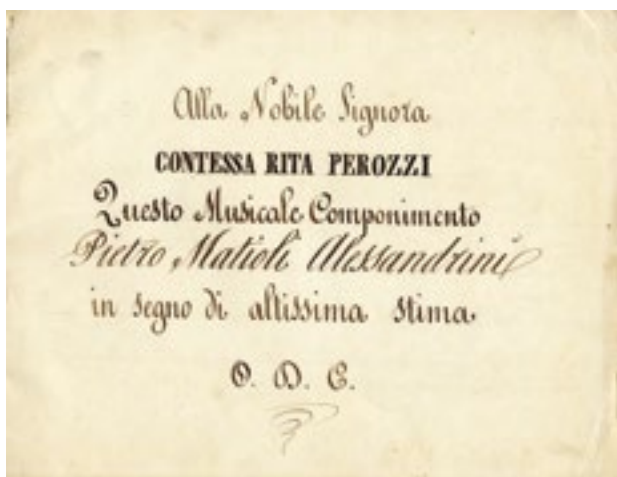 Alla Nobile Signora
CONTESSA RITA PEROZZI
Questo Musicale Componimento
Pietro Matioli Alessandrini
in segno di altissima stima
O. D. C.